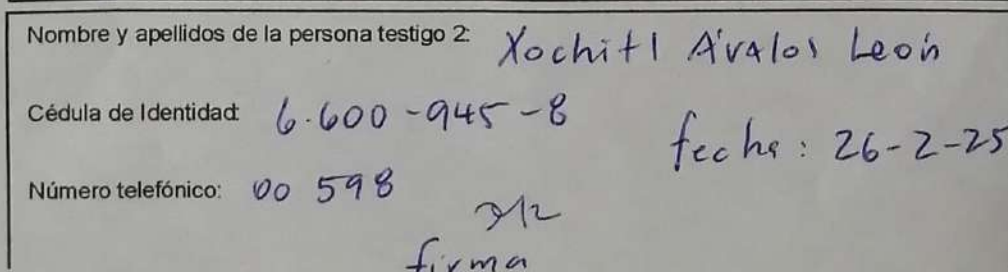 Nombre y apellidos de la persona testigo 2: Xochitl Ávalos León
Cédula de Identidad: 6.600-945-8
fecha: 26-2-25
Número telefónico: 00 598
firma